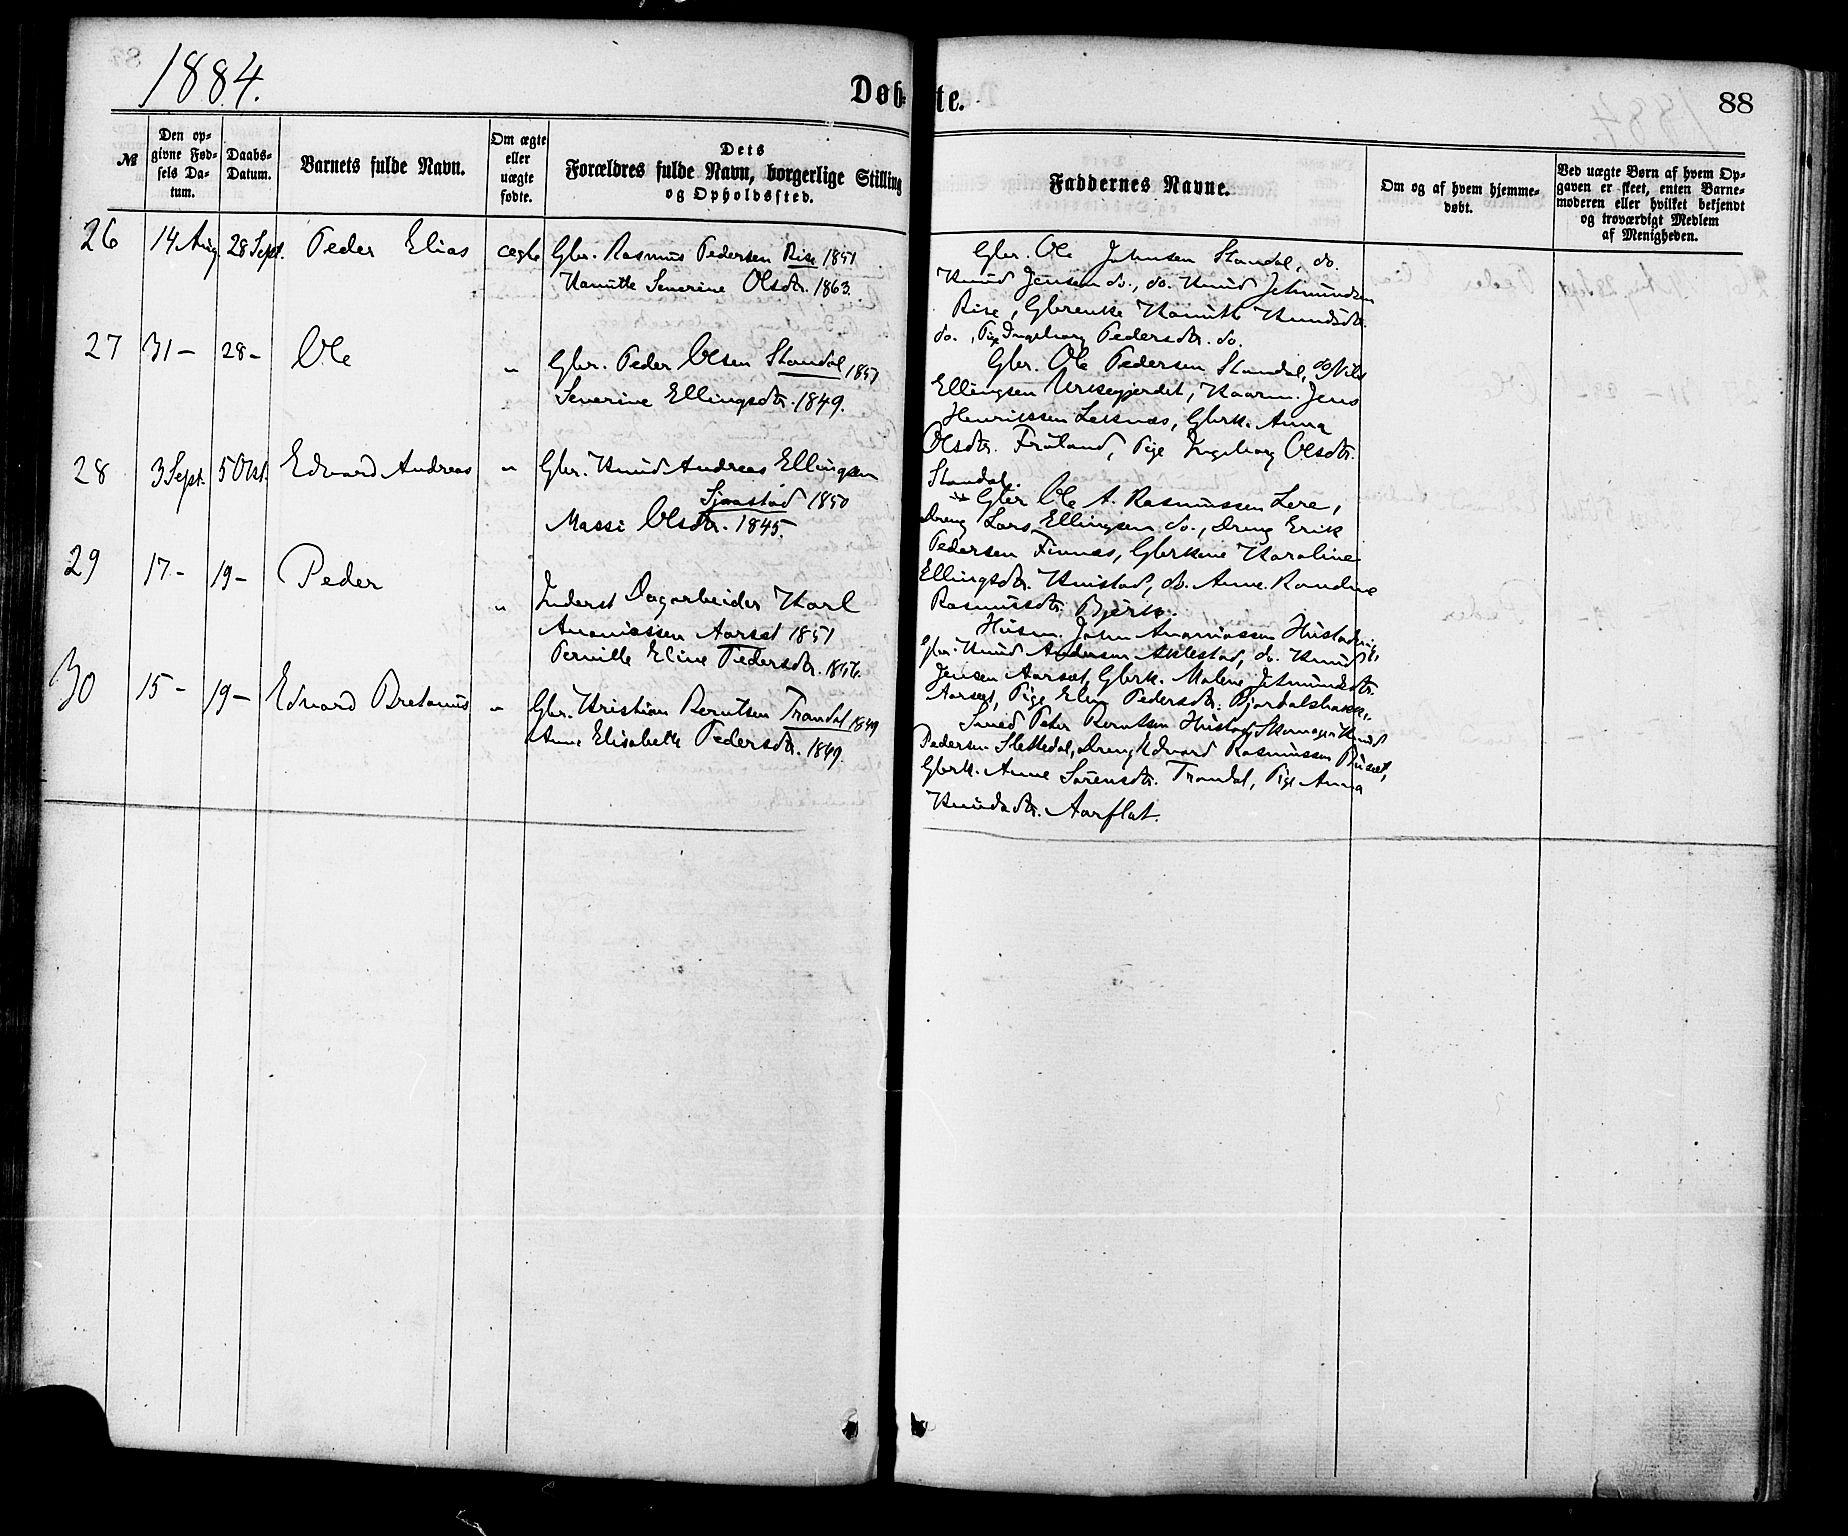 1884.
Døbte.
88
№
Den opgivne Fødsels Datum.
Daabs-Datum.
Barnets fulde Navn.
Om ægte eller uægte fødte.
Dets Forældres fulde Navn, borgerlige Stilling og Opholdssted.
Faddernes Navne.
Om og af hvem hjemmedøbt.
Ved uægte Børn af hvem Opgaven er skeet, enten Barnemoderen eller hvilket bekjendt og troværdigt Medlem af Menigheden.
26 14 Aug. 28 Sept. Peder Elias ægte
Gbr. Rasmus Pedersen Rise 1851
Hanitte Severine Olsdtr. 1863.
Gbr. Ole Johnsen Standal, do.
Knud Jensen do., do. Knud Jetmundsen
Rise, Gbrenke Knudsdtr.
do., Pige Ingeborg Pedersdtr. do.
27 31 - 28 - Ole "
Gbr. Peder Olsen Standal 1857
Severine Ellingsdtr. 1849.
Gbr. Ole Pedersen Standal, do Nils
Ellingsen Urkegjerdet, Kaarm. Jens
Henrikssen Leknæs, Gbrk. Anna
Olsdtr. Frøland, Pige Ingeborg Olsdtr.
Standal.
28 3 Sept. 5 Okt. Edvard Andreas "
Gbr. Knud Andreas Ellingsen
Sjaastad 1850
Massi Olsdtr. 1845.
Gbr Ole A. Rasmussen Lere,
Dreng Lars Ellingsen do., Dreng Erik
Pedersen Finnes, Gbrkone Karoline
Ellingsdtr. do. Anne Randine
Rasmusdtr. Bjørke.
29 17 - 19 - Peder "
Inderst Dagarbeider Karl
Ananiassen Aarset 1851
Pernille Eline Pedersdtr. 1856.
Husm. John Ananiassen
Gbr. Knud Andersen do. Knud
Jensen Aarset, Gbrk. Malene Jetmundsdtr.
Aarset, Pige Eline Pedersdtr.
30 15 - 19 - Edvard Bretanus "
Gbr. Kristian Berntsen Trandal 1849
Anne Elisabeth Pedersdtr. 1849.
Smed Peter Berntsen Hustad, Skomager Knud
Pedersen Slettedal, Dreng Edvard Rasmussen
Gbrk. Anne Sørensdtr. Trandal, Pige Anna
Knudsdtr. Aarflot.